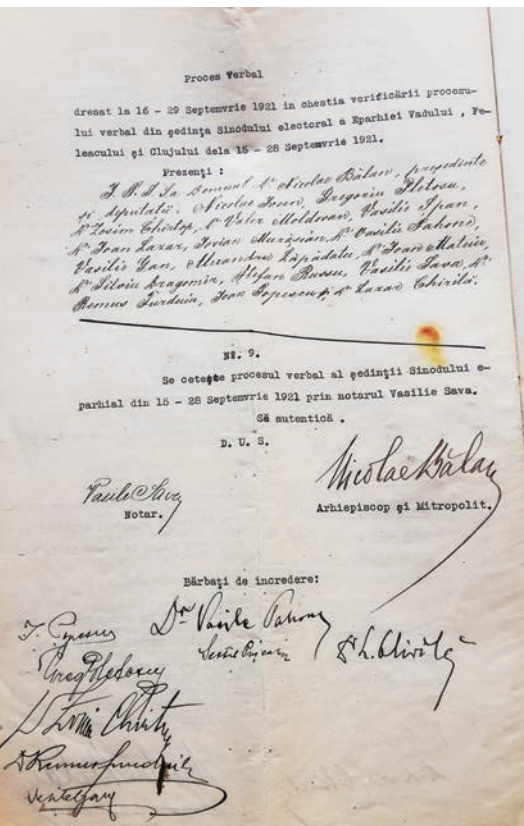 Proces Verbal
dresat la 16 - 29 Septemvrie 1921 in chestia verificării procesu-
lui verbal din ședința Sinodului electoral a Eparhiei Vadului , Fe-
leacului și Clujului dela 15 - 28 Septemvrie 1921.
Prezenți :
I. P. S. Sa Domnul Dr Nicolae Bălan, președinte
și deputații: Nicolae Ivan, Gregoriu Pletosu,
Dr Zosim Chirtop, Dr Valer Moldovan, Vasilie Span,
Dr Ioan Lazar, Jovian Murășian, Dr Vasilie Pahone,
Vasilie Gan, Alexandru Lăpădatu, Dr Ioan Mateiu,
Dr Silviu Dragomir, Ștefan Russu, Vasilie Sava, Dr
Remus Furduiu, Ioan Popescu și Dr Lazar Chirilă.
Nr. 9.
Se cetește procesul verbal al ședinții Sinodului e-
parhial din 15 - 28 Septemvrie 1921 prin notarul Vasilie Sava.
Să autentică .
D. U. S.
Vasile Sava
Nicolae Bălan
Notar.
Arhiepiscop și Mitropolit.
Bărbați de incredere:
I. Popescu
Dr Vasile Pahone
Greg Pletosu
Dr L. Chirilă